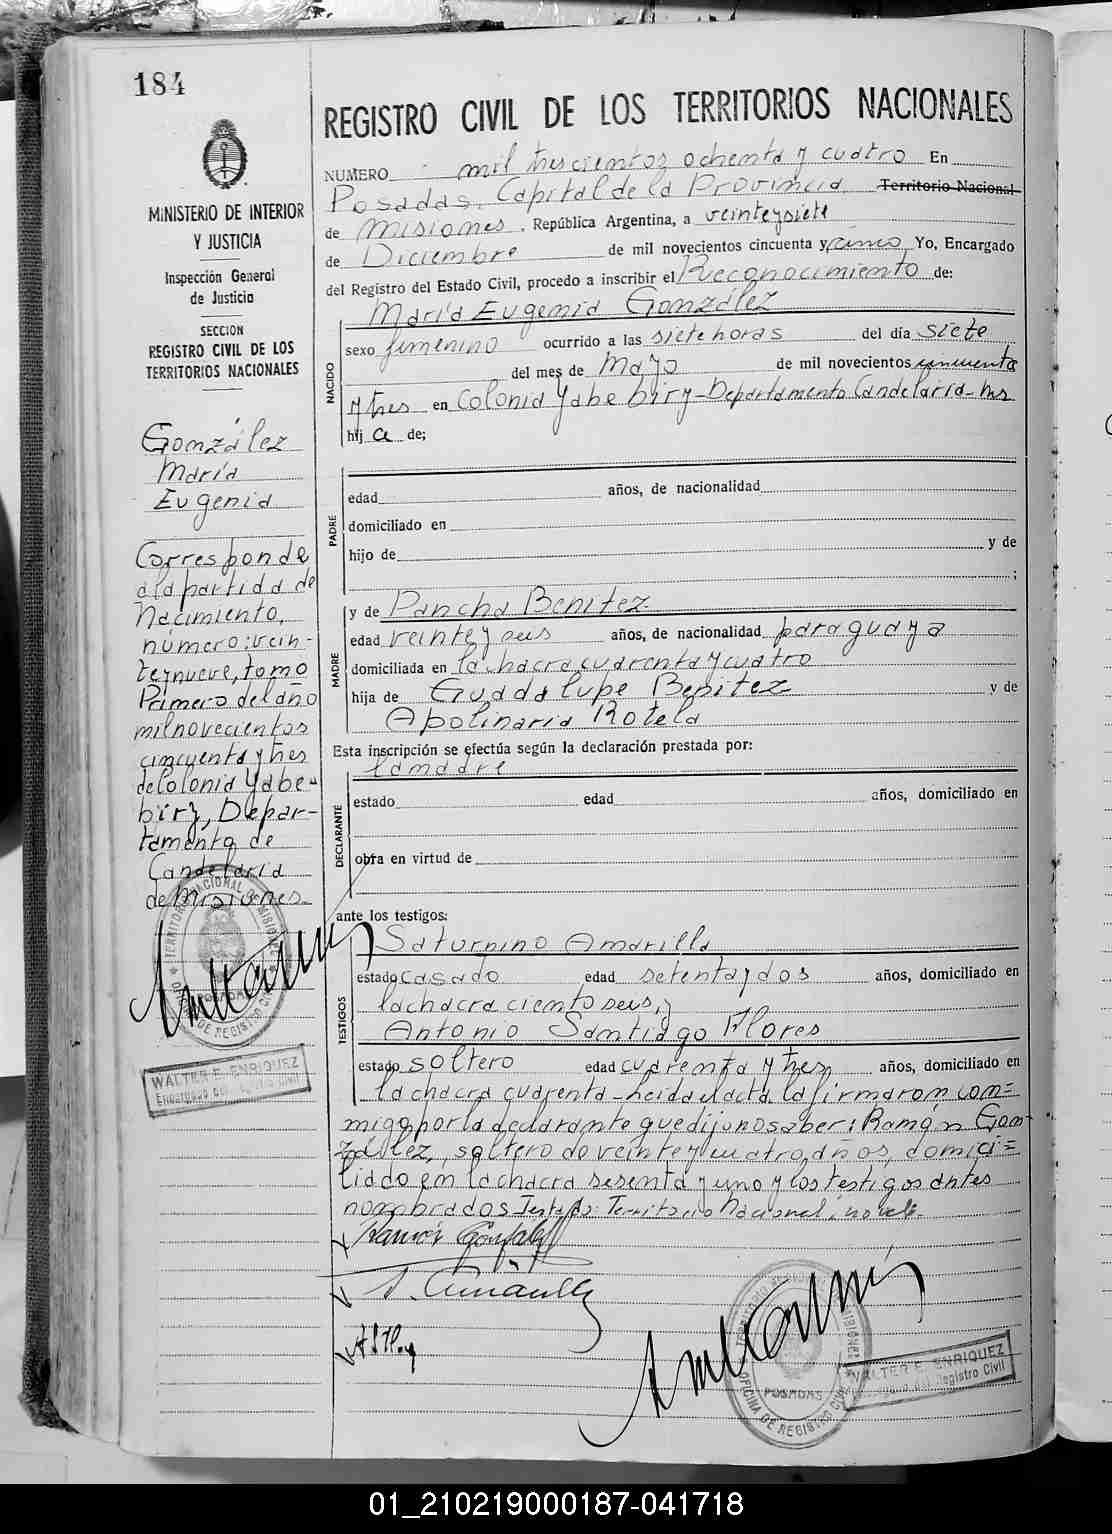 184
MINISTERIO DE INTERIOR
Y JUSTICIA
Inspección General
de Justicia
SECCION
REGISTRO CIVIL DE LOS
TERRITORIOS NACIONALES
González
María
Eugenia
Corresponde
a la partida de
Nacimiento,
número: vein-
teynueve, tomo
Primero del año
mil novecientos
cincuenta y tres
de Colonia Yabe-
biry, Depar-
tamento de
Candelaria
de Misiones.-
TERRITORIO NACIONAL DE MISIONES
OFICINA DE REGISTRO CIVIL
POSADAS
WALTER E. ENRIQUEZ
Encargado del Registro Civil
REGISTRO CIVIL DE LOS TERRITORIOS NACIONALES
NUMERO mil trescientos ochenta y cuatro En
Posadas, Capital de la Provincia Territorio Nacional
de Misiones. República Argentina, a veinteysiete
de Diciembre de mil novecientos cincuenta y cinco Yo, Encargado
del Registro del Estado Civil, procedo a inscribir el Reconocimiento de:
María Eugenia González
NACIDO
sexo femenino ocurrido a las siete horas del día siete
del mes de Mayo de mil novecientos cincuenta
y tres en Colonia Yabebiry-Departamento Candelaria-Mns
hija de;
PADRE
edad años, de nacionalidad
domiciliado en
hijo de y de
;
MADRE
y de Pancha Benitez
edad veinte y seis años, de nacionalidad paraguaya
domiciliada en la chacra cuarenta y cuatro
hija de Guadalupe Benitez y de
Apolinaria Rotela
Esta inscripción se efectúa según la declaración prestada por:
la madre
DECLARANTE
estado edad años, domiciliado en
obra en virtud de
ante los testigos:
TESTIGOS
Saturnino Amarilla
estado casado edad setenta y dos años, domiciliado en
la chacra ciento seis, y
Antonio Santiago Flores
estado soltero edad cuarenta y tres años, domiciliado en
la chacra cuarenta-leida el acta, la firmaron con=
migo por la declarante que dijo no saber: Ramón Gon-
zález, soltero de veinte y cuatro años, domici=
liado en la chacra sesenta y uno y los testigos antes
nombrados Testado: Territorio Nacional: no vale.
Ramón González
S. Amarilla
TERRITORIO NACIONAL DE MISIONES
OFICINA DE REGISTRO CIVIL
POSADAS
WALTER E. ENRIQUEZ
Encargado del Registro Civil
01_210219000187-041718